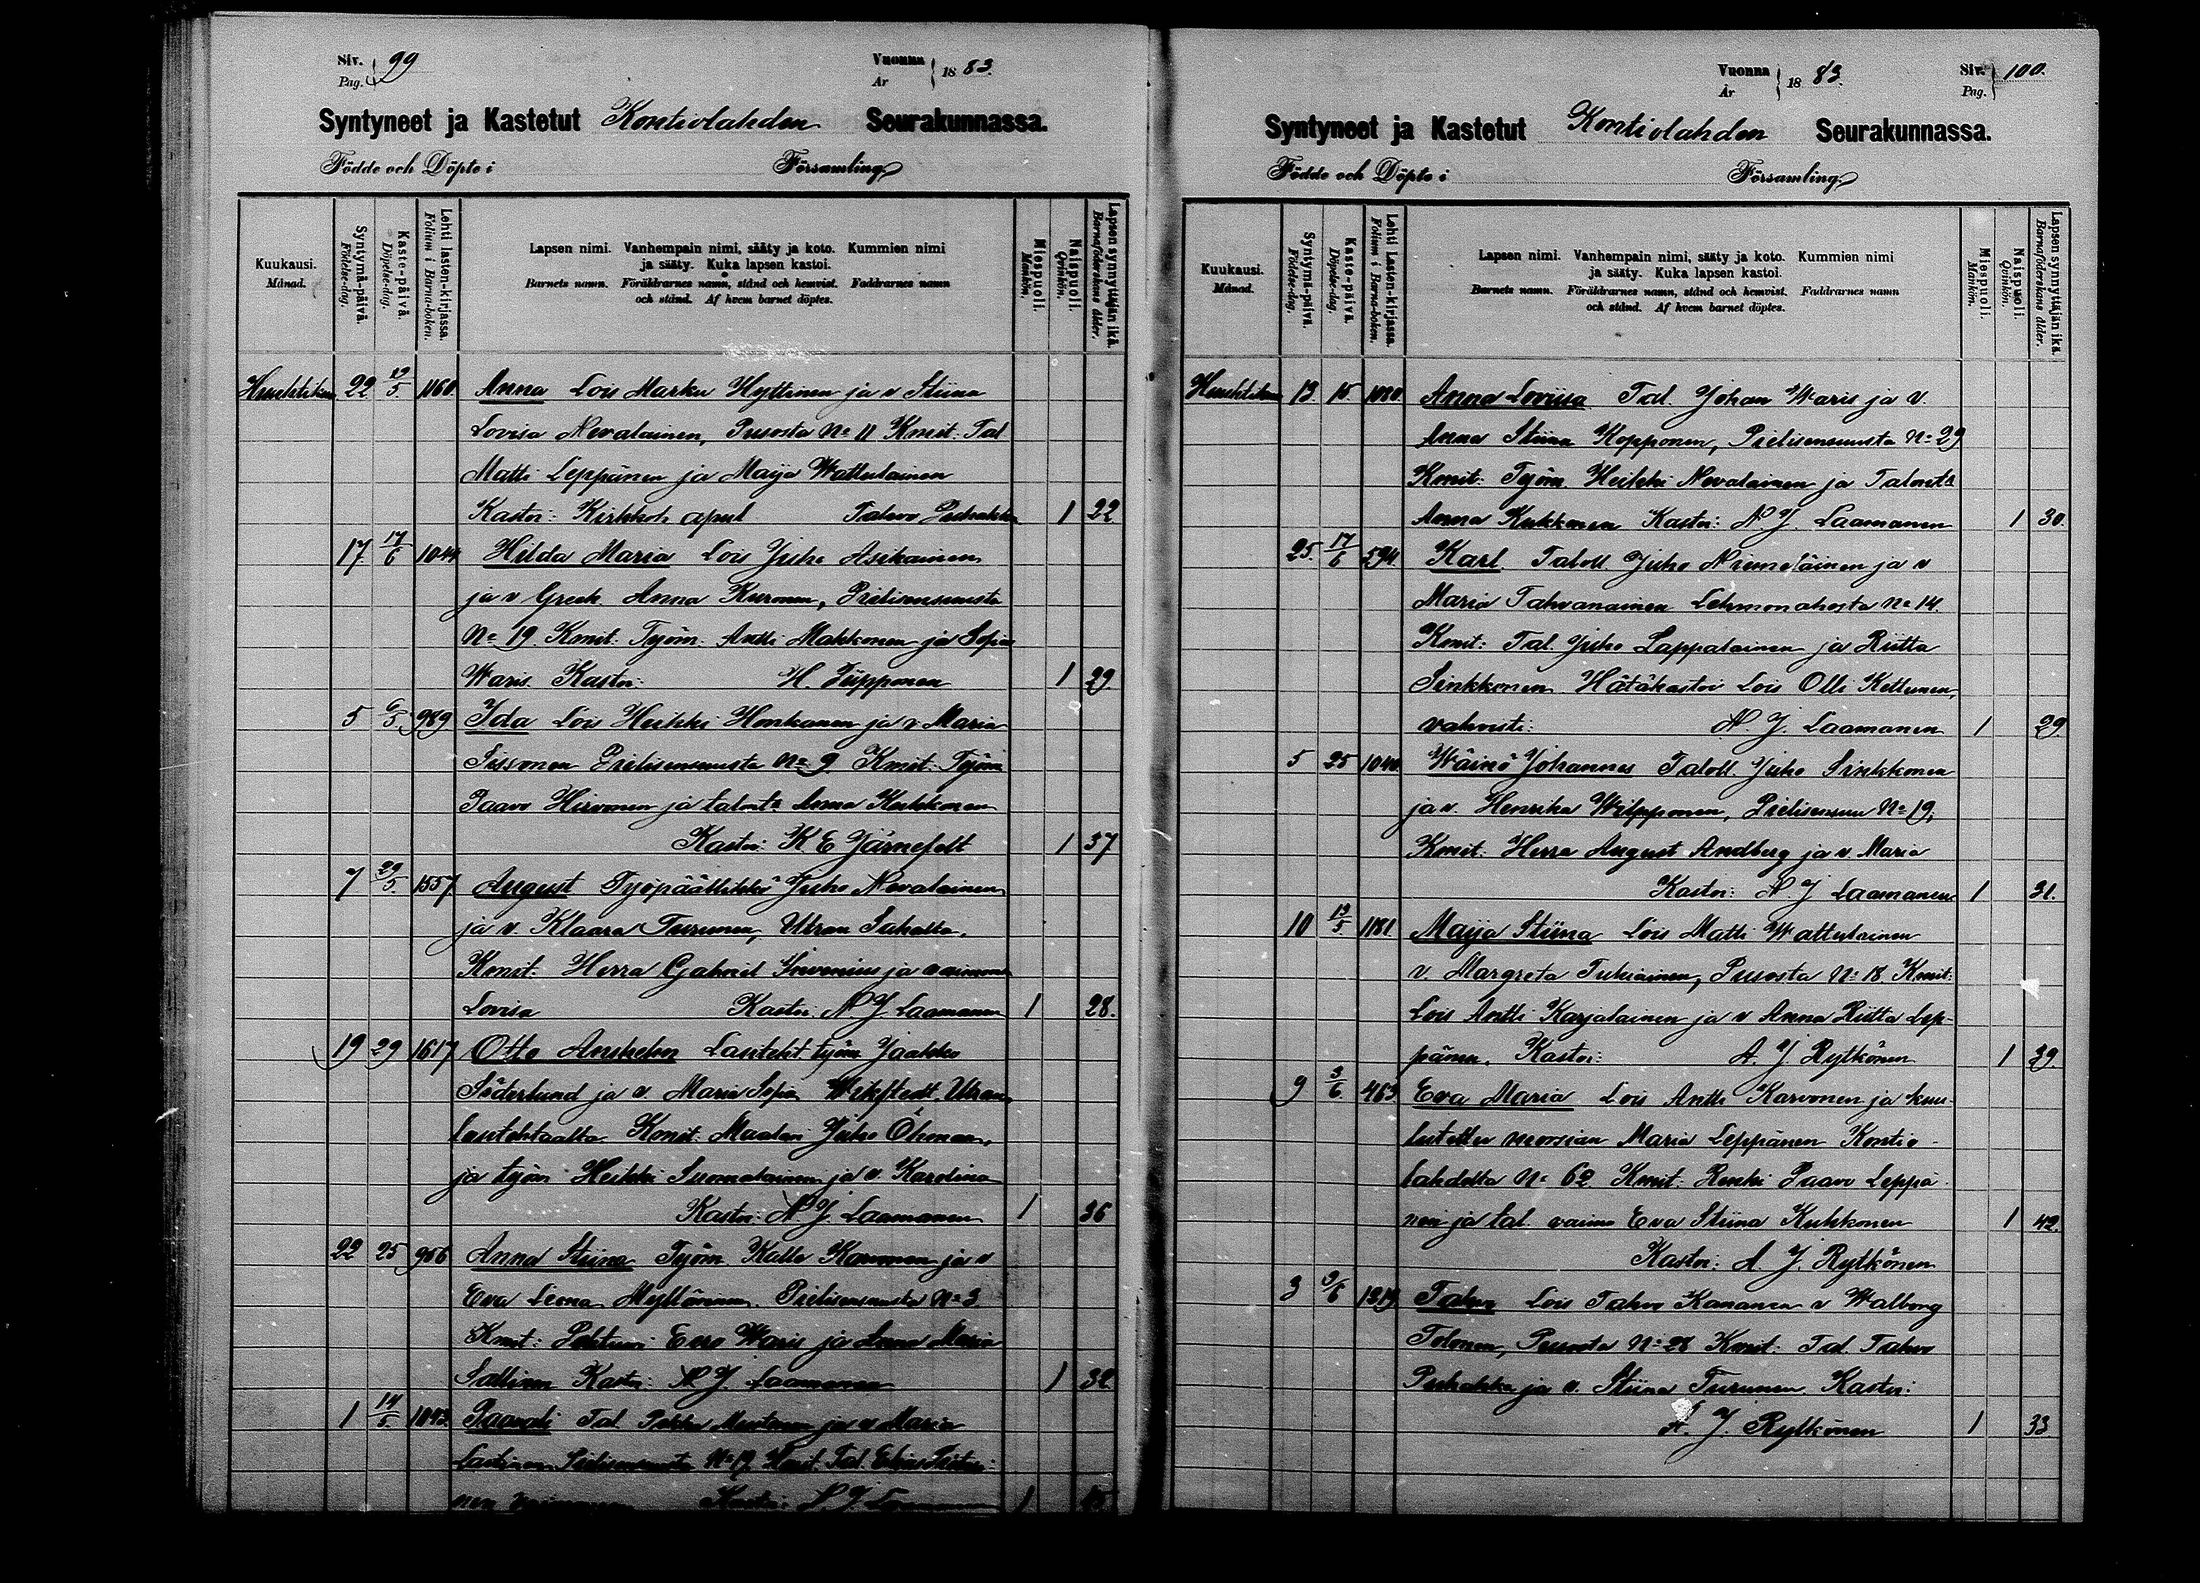 Siv. 99
Pag.
Vuonna 1883.
År
Syntyneet ja Kastetut Kontiolahden Seurakunnassa.
Födde och Döpte i Församling
Kuukausi.
Månad.
Syntymä-päivä.
Födelse-dag.
Kaste-päivä.
Döpelse-dag.
Lehti lasten-kirjassa.
Folium i Barna-boken.
Lapsen nimi. Vanhempain nimi, sääty ja koto. Kummien nimi
ja sääty. Kuka lapsen kastoi.
Barnets namn. Föräldrarnes namn, stånd och hemvist. Faddrarnes namn
och stånd. Af hvem barnet döptes.
Miespuoli.
Mankön.
Naispuoli.
Qvinkön.
Lapsen synnyttäjän ikä.
Barnaföderskans ålder.
22 29/5 1160 Anna Lois Marku Hyttinen ja v Stiina
Lovisa Nevalainen, Pusosta No 11 Kmit: Tal
Matti Leppänen ja Maija Wattulainen
Kastoi: Kirkkoh. apul 1 22
17. 17/6 Hilda Maria Lois Juho Asikainen
ja v Greeh. Anna Kuronen, Pielisensuusta
No 19. Kmit: Työm: Antti Makkonen ja Sofia
Waris. Kastoi: 1 29.
5 6/5 989 Ida Lois Heikki Honkanen ja v Maria
Sissonen Pielisensuusta No 9. Kmit: Työm
Paavo Hirvonen ja talontr Anna Kukkonen
Kastoi: K E Järnefelt 1 37
7 29/5. 1557. August Työpäällikkö Juho Nevalainen
ja v. Klaara Turunen, Utran Sahalta.
Kmit: Herra Gabriel ja vaimonsa
Lovisa Kastoi: N J Laamanen 1 28.
19 29 1617 Otto Lasteht työm Jaakko
Söderlund ja v. Maria Sofia Wikstedt, Utran
lasitehtaalta Kmit: Maalari Juho Öhman,
ja työm Heikki Suomalainen ja v Karolina
Kastoi: N J. Laamanen 1 36
22 25 966 Anna Stiina Työm Kalle ja v
Eva Leena Myllärinen. Pielisensuusta No 3.
Kmit: Eero Waris ja Anna Maria
Sallinen Kastoi: N J. Laamanen 1 32.
1 14/5. 1043. Paavali Tal. Pekka Mustonen ja v Maria
Pielisensuusta No 19 Kmit. Tal. Elias
Kastoi: N J Laamanen 1
Vuonna 1883.
År
Siv. 100.
Pag.
Syntyneet ja Kastetut Kontiolahden Seurakunnassa.
Födde och Döpte i Församling
Kuukausi.
Månad.
Syntymä-päivä.
Födelse-dag.
Kaste-päivä.
Döpelse-dag.
Lehti Lasten-kirjassa.
Folium i Barna-boken.
Lapsen nimi. Vanhempain nimi, sääty ja koto. Kummien nimi
ja sääty. Kuka lapsen kastoi.
Barnets namn. Föräldrarnes namn, stånd och hemvist. Faddrarnes namn
och stånd. Af hvem barnet döptes.
Miespuoli.
Mankön.
Naispuoli.
Qvinkön.
Lapsen synnyttäjän ikä.
Barnaföderskans ålder.
13 15 1080 Anna Loviisa Tal. Johan Waris ja v.
Anna Stiina Kopponen, Pielisensuusta No 29
Kmit: Työm Heikki Nevalainen ja Talontr
Anna Kukkonen Kastoi: N J. Laamanen 1 30.
25. 17/6 594. Karl Taloll Juho Niemeläinen ja v
Maria Tahvanainen Lehmonahosta No 14.
Kmit: Tal. Juho Lappalainen ja Riitta
Sinkkonen. Hätäkastoi Lois Olli Kettunen,
vahvisti: N. J. Laamanen 1 29.
5 25 1040 Wäinö Johannes Taloll. Juho Sinkkonen
ja v. Henrika Wilpponen, Pielisensuu No 19;
Kmit: Herra August Andberg ja v Maria
Kastoi: N J Laamanen 1 31.
10 13/5. 1181 Maija Stiina Lois Matti Wattulainen
v. Margreta Tukiainen, Pusosta No 18. Kmit:
Lois Antti Karjalainen ja v Anna Riitta Lep-
pänen. Kastoi: A. J. Rytkönen 1 39.
9 3/6. 463. Eva Maria Lois Antti Karvonen ja kuu-
lutettu morsian Maria Leppänen Kontio-
lahdelta No 62 Kmit: Renki Paavo Leppä-
nen ja tal. vaimo Eva Stiina Kukkonen 1 42.
Kastoi: A J. Rytkönen
3 3/6 1219 Tahvo Lois Tahvo Kananen v Walborg
Tolonen, Pusosta No 28 Kmit: Tal. Tahvo
Puhakka ja v. Stiina Turunen. Kastoi:
A. J. Rytkönen 1 33